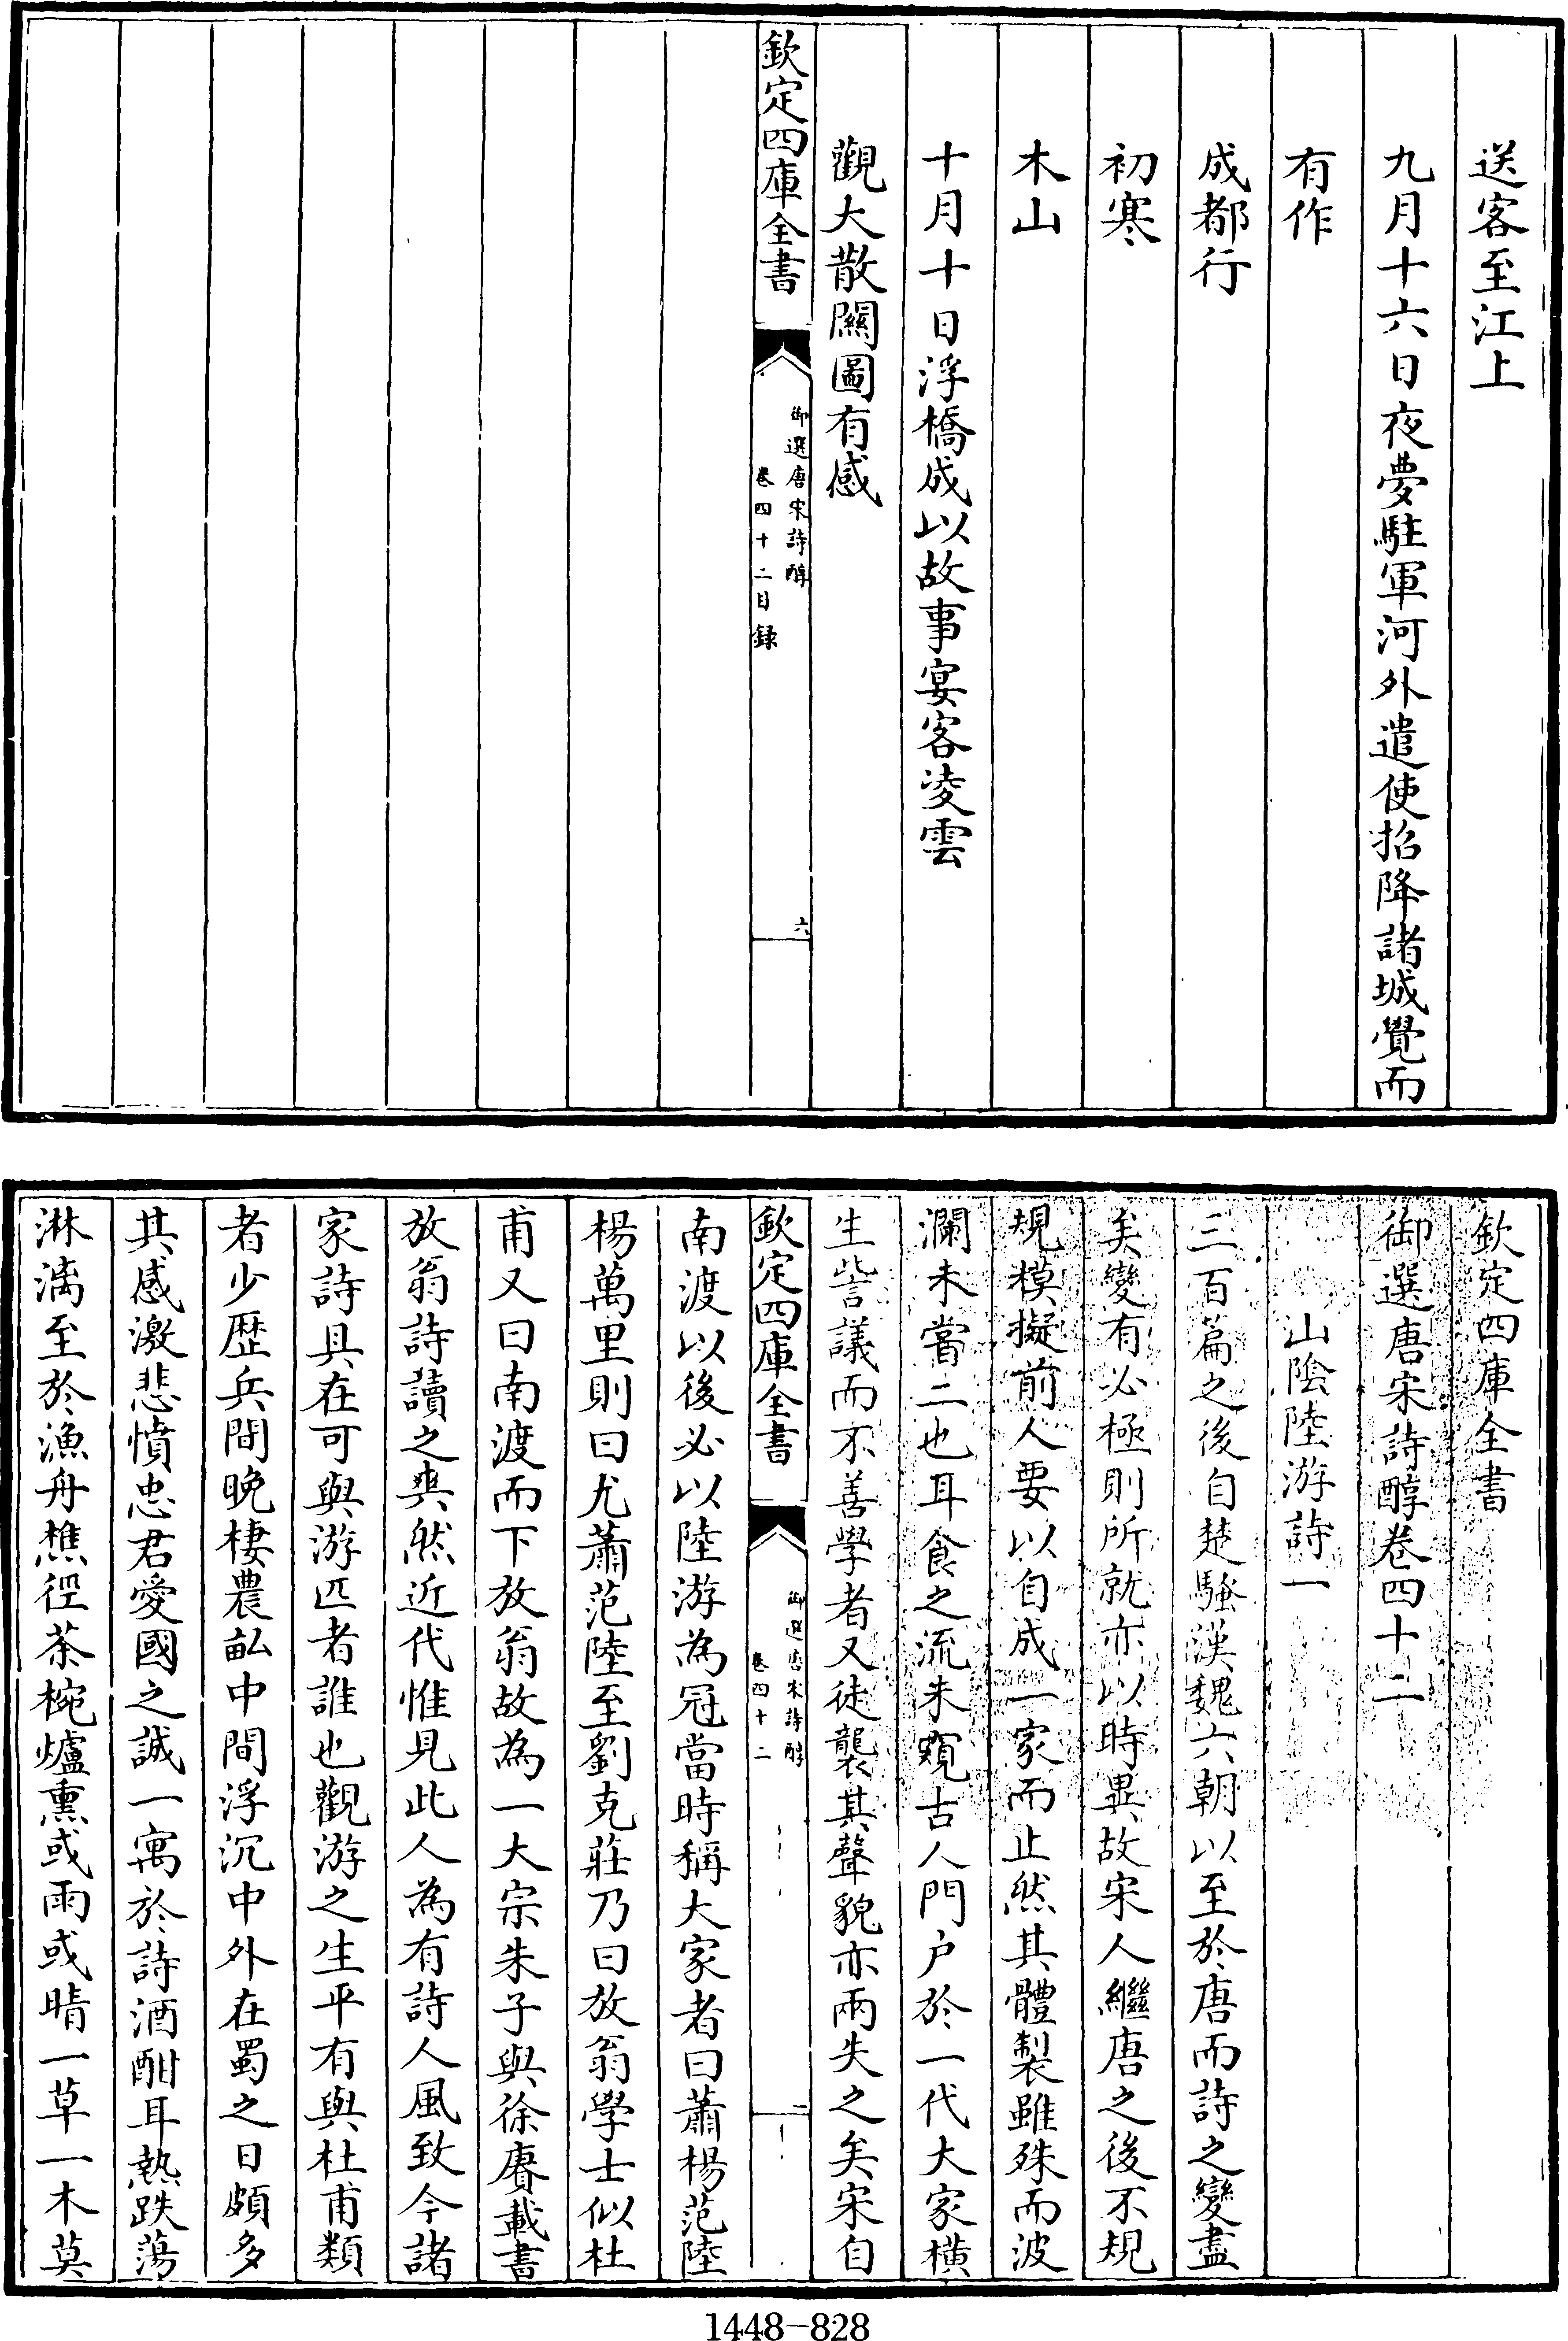 送客至江上
九月十六日夜夢駐軍河外遣使招降諸城覺而
有作
成都行
初寒
木山
十月十日浮橋成以故事宴客凌雲
觀大散關圖有感
欽定四庫全書
御選唐宋詩醇
卷四十二目録
六
欽定四庫全書
御選唐宋詩醇卷四十二
山陰陸游詩一
三百篇之後自楚騷漢魏六朝以至於唐而詩之變盡
矣變有必極則所就亦以時異故宋人繼唐之後不規
規模擬前人要以自成一家而止然其體製雖殊而波
瀾未嘗二也耳食之流未窺古人門户於一代大家橫
生訾議而不善學者又徒襲其聲貌亦兩失之矣宋自
欽定四庫全書
御選唐宋詩醇
卷四十二
一
南渡以後必以陸游為冠當時稱大家者曰蕭楊范陸
楊萬里則曰尤蕭范陸至劉克莊乃曰放翁學士似杜
甫又曰南渡而下放翁故為一大宗朱子與徐賡載書
放翁詩讀之爽然近代惟見此人為有詩人風致今諸
家詩具在可與游匹者誰也觀游之生平有與杜甫類
者少歴兵間晩棲農畝中間浮沉中外在蜀之日頗多
其感激悲憤忠君愛國之誠一寓於詩酒酣耳熱跌蕩
淋漓至於漁舟樵徑茶椀爐熏或雨或晴一草一木莫
1448-828